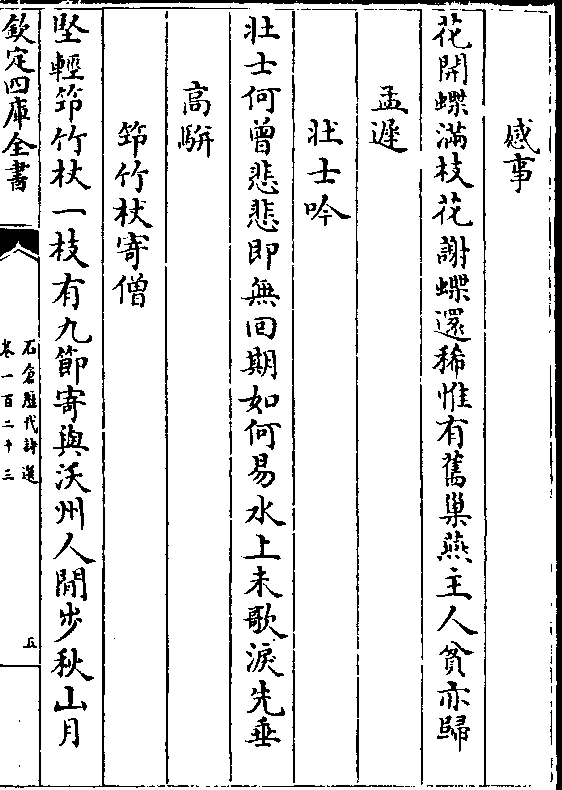 感事
花開蝶滿枝花謝蝶還稀惟有舊巢燕主人貧亦歸
孟遲
壯士吟
壯士何曾悲悲即無回期如何易水上未歌淚先垂
高駢
筇竹杖寄僧
堅輕筇竹杖一枝有九節寄與沃州人閒步秋山月
欽定四庫全書
石倉歷代詩選
卷一百二十三
五